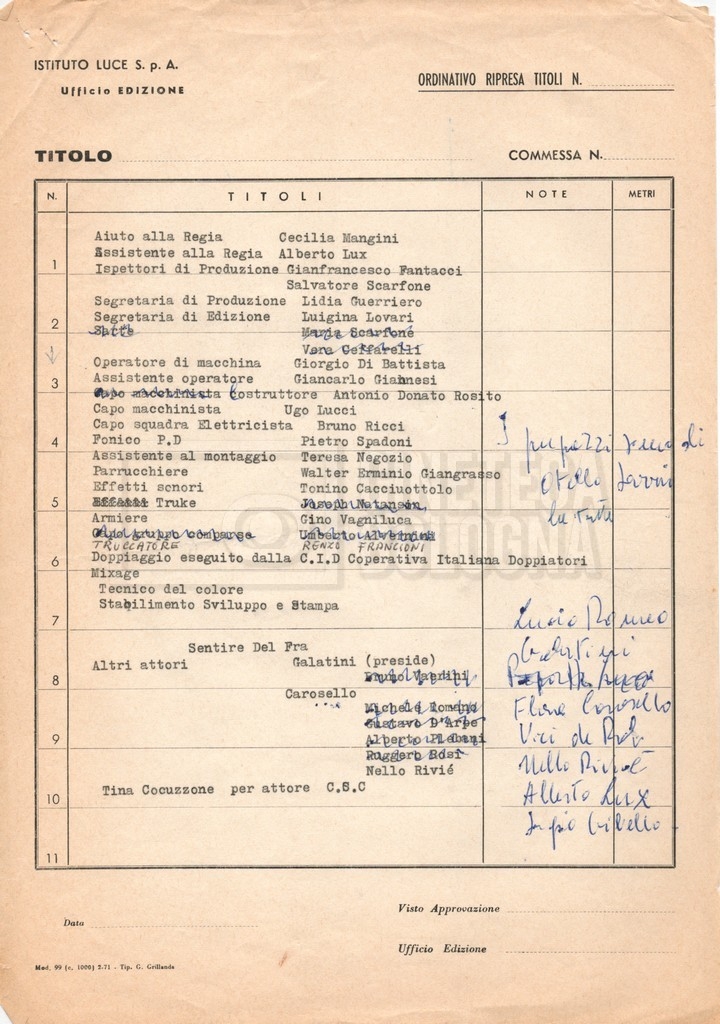 ISTITUTO LUCE S. p. A.
Ufficio EDIZIONE
ORDINATIVO RIPRESA TITOLI N.
TITOLO
COMMESSA N.
N. TITOLI NOTE METRI
Aiuto alla Regia Cecilia Mangini
Assistente alla Regia Alberto Lux
1
Ispettori di Produzione Gianfrancesco Fantacci
Salvatore Scarfone
Segretaria di Produzione Lidia Guerriero
Segretaria di Edizione Luigina Lovari
2
Sarte Maria Scarfone
Vera Ceffarelli
Operatore di macchina Giorgio Di Battista
Assistente operatore Giancarlo Giannesi
3
Capo macchinista Costruttore Antonio Donato Rosito
Capo macchinista Ugo Lucci
Capo squadra Elettricista Bruno Ricci
4
Fonico P.D Pietro Spadoni
I pupazzi sono di
Assistente al montaggio Teresa Negozio
Parrucchiere Walter Erminio Giangrasso
Otello
Effetti sonori Tonino Cacciuottolo
5
Effetti Truke Joseph Natanson
Armiere Gino Vagniluca
Capo gruppo comparse Umberto
TRUCCATORE RENZO FRANCIONI
6
Doppiaggio eseguito dalla C.I.D Coperativa Italiana Doppiatori
Mixage
Tecnico del colore
Stabilimento Sviluppo e Stampa
7
Lucio Romeo
Sentire Del Fra
Galatini
Altri attori Galatini (preside)
8
Bruno Vaerini
Carosello
Flora Carosello
Michele Romeno
Gustavo D'Arpe
Vici de
9
Alberto Plebani
Ruggero Rosi
Nello Rivié
Nello Rivié
Tina Cocuzzone per attore C.S.C
10
Alberto Lux
Sergio
11
Data
Visto Approvazione
Ufficio Edizione
Mod. 99 (c. 1000) 2-71 - Tip. G. Grillanda
CINETECA
BOLOGNA